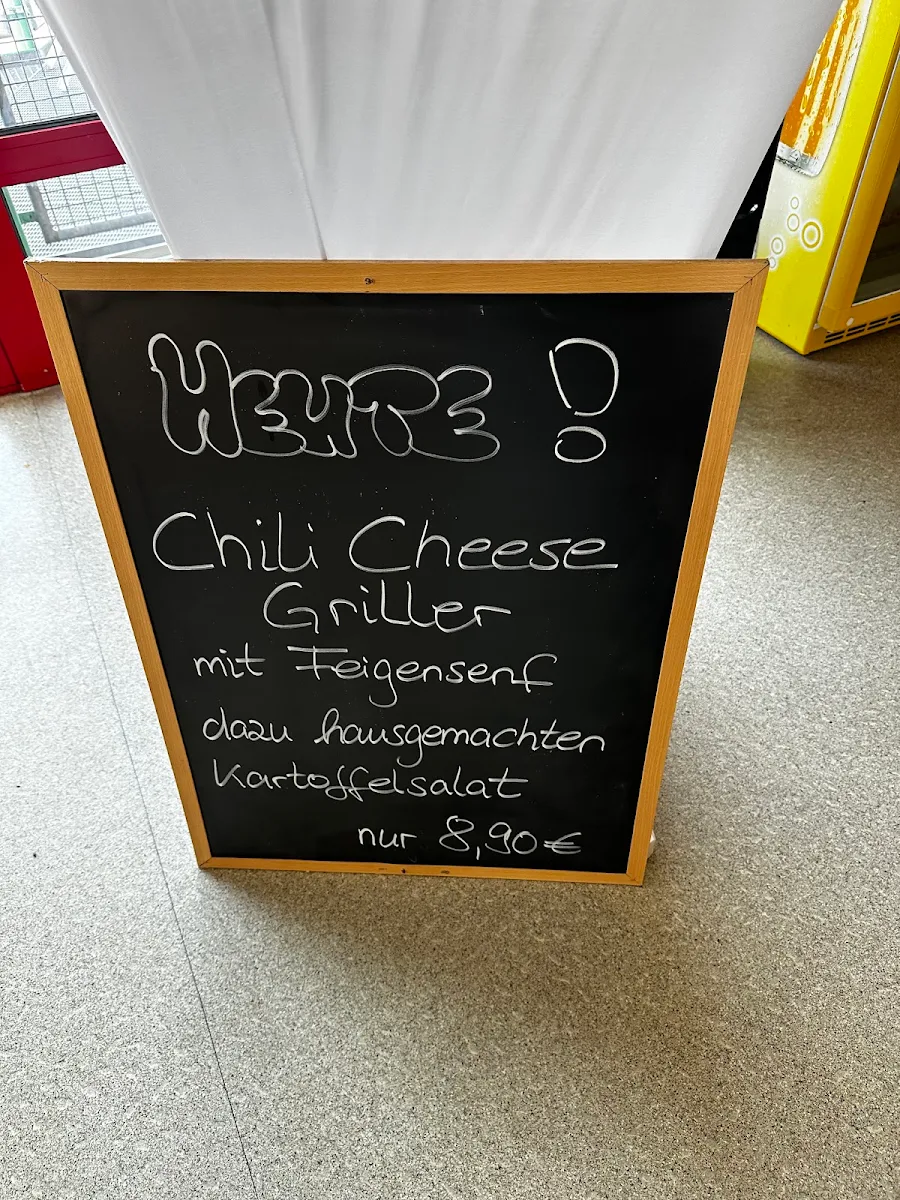 HEUTE !
Chili Cheese
Griller
mit Feigensenf
dazu hausgemachten
Kartoffelsalat
nur 8,90€